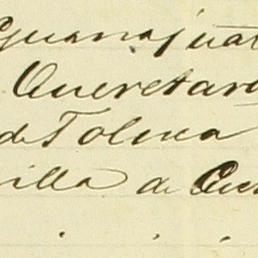 Guanajuat
Queretaro
de Toluca
illa de Cu
. . .